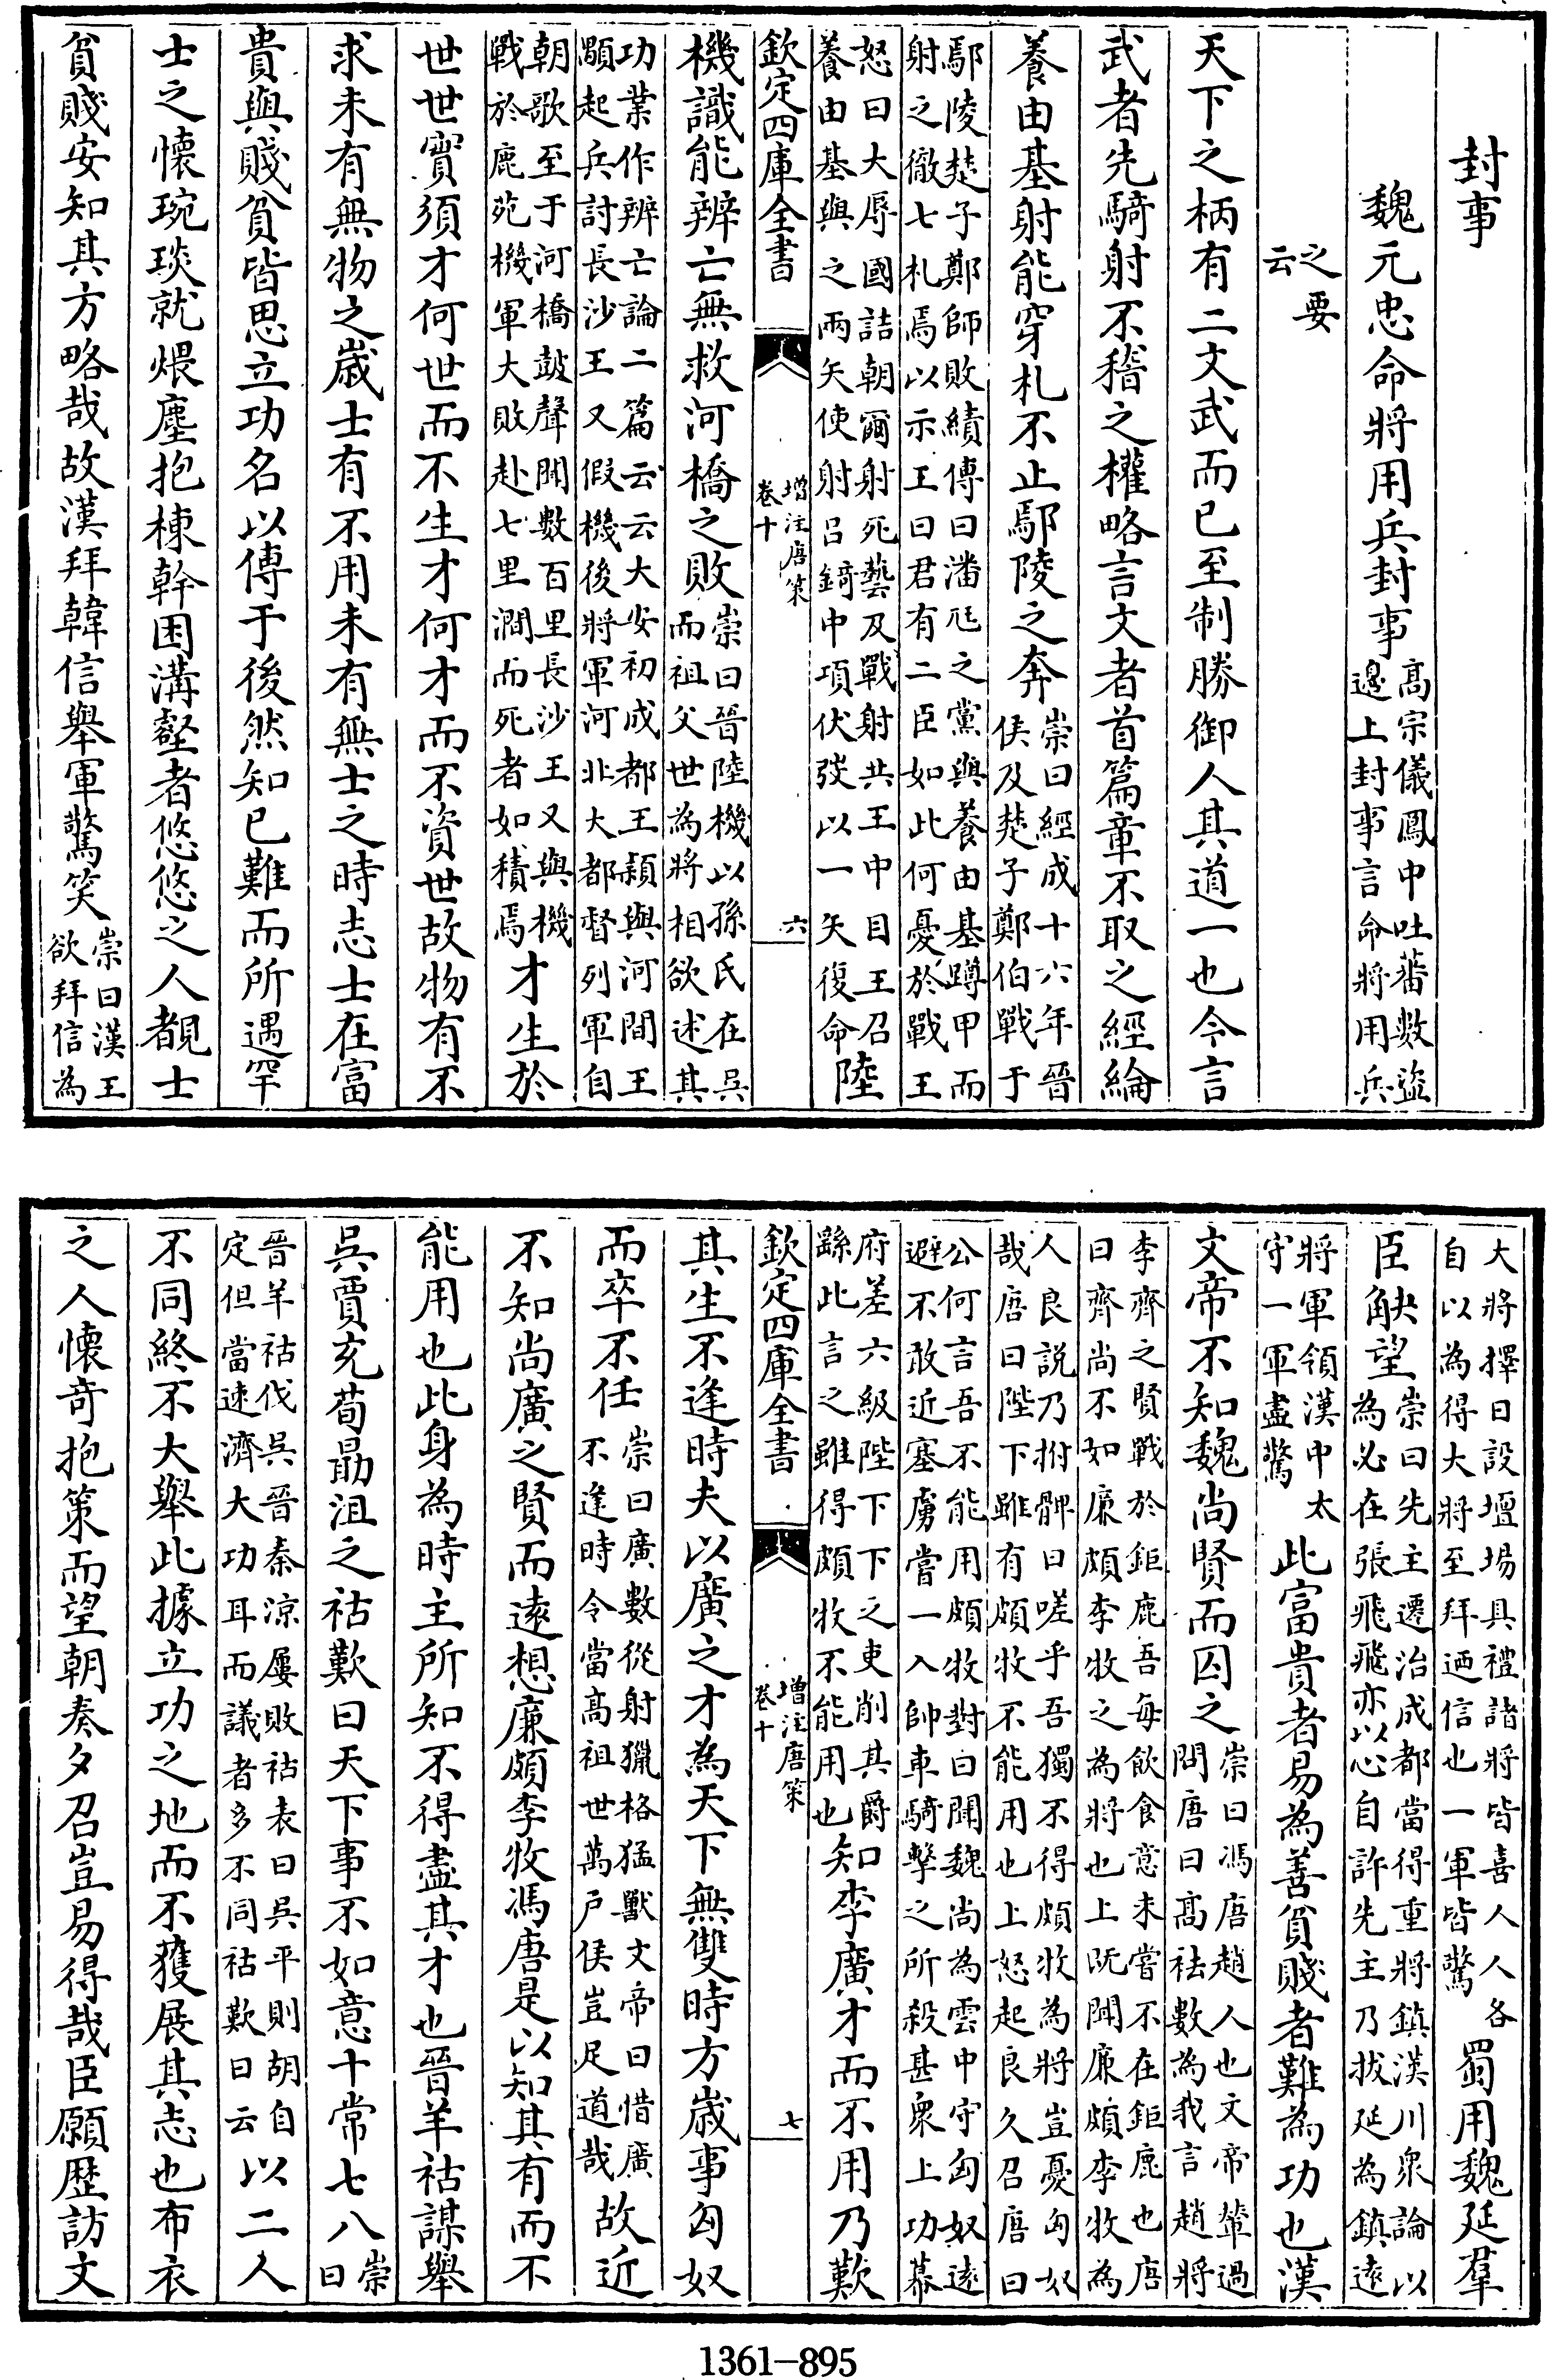 封事
魏元忠命將用兵封事髙宗儀鳳中吐蕃數盜邊上封事言命將用兵
之要云
天下之柄有二文武而已至制勝御人其道一也今言
武者先騎射不稽之權略言文者首篇章不取之經綸
養由基射能穿札不止鄢陵之奔崇曰經成十六年晉侯及楚子鄭伯戰于
鄢陵楚子鄭師敗績傳曰潘尫之黨與養由基蹲甲而射之徹七札焉以示王曰君有二臣如此何憂於戰王
怒曰大辱國詰朝爾射死藝及戰射共王中目王召養由基與之兩矢使射呂錡中項伏弢以一矢復命陸
欽定四庫全書
增注唐策
卷十
六
機識能辨亡無救河橋之敗崇曰晉陸機以孫氏在吳而祖父世為將相欲述其
功業作辨亡論二篇云云大安初成都王頴與河間王顒起兵討長沙王乂假機後將軍河北大都督列軍自
朝歌至于河橋鼓聲聞數百里長沙王乂與機戰於鹿苑機軍大敗赴七里澗而死者如積焉才生於
世世實須才何世而不生才何才而不資世故物有不
求未有無物之歲士有不用未有無士之時志士在富
貴與賤貧皆思立功名以傳于後然知已難而所遇罕
士之懷琬琰就煨塵抱棟幹困溝壑者悠悠之人覩士
貧賤安知其方略哉故漢拜韓信舉軍驚笑崇曰漢王欲拜信為
大將擇日設壇場具禮諸將皆喜人人各自以為得大將至拜迺信也一軍皆驚蜀用魏延羣
臣觖望崇曰先主遷治成都當得重將鎮漢川衆論以為必在張飛飛亦以心自許先主乃拔延為鎮遠
將軍領漢中太守一軍盡驚此富貴者易為善貧賤者難為功也漢
文帝不知魏尚賢而囚之崇曰馮唐趙人也文帝輦過問唐曰髙袪數為我言趙將
李齊之賢戰於鉅鹿吾每飲食意未嘗不在鉅鹿也唐曰齊尚不如廉頗李牧之為將也上既聞廉頗李牧為
人良說乃拊髀曰嗟乎吾獨不得頗牧為將豈憂匈奴哉唐曰陛下雖有頗牧不能用也上怒起良久召唐曰
公何言吾不能用頗牧對曰聞魏尚為雲中守匈奴遠避不敢近塞虜嘗一入帥車騎擊之所殺甚衆上功幕
府差六級陛下下之吏削其爵繇此言之雖得頗牧不能用也知李廣才而不用乃歎
欽定四庫全書
增注唐策
卷十
七
其生不逢時夫以廣之才為天下無雙時方歲事匈奴
而卒不任崇曰廣數從射獵格猛獸文帝曰惜廣不逢時令當髙祖世萬戶侯豈足道哉故近
不知尚廣之賢而遠想廉頗李牧馮唐是以知其有而不
能用也此身為時主所知不得盡其才也晉羊祜謀舉
吳賈充荀勗沮之祜歎曰天下事不如意十常七八崇曰
晉羊祜伐吳晉秦涼屢敗祜表曰吳平則胡自定但當速濟大功耳而議者多不同祜歎曰云以二人
不同終不大舉此據立功之地而不獲展其志也布衣
之人懷奇抱策而望朝奏夕召豈易得哉臣願歴訪文
1361-895